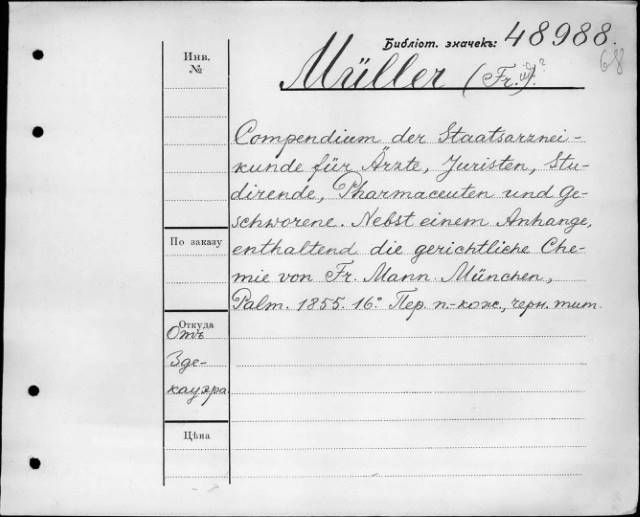 Библіот. значекъ: 48988.
68
Инв.
№
Müller (Fr.)?
Compendium der Staatsarznei-
kunde für Ärzte, Juristen, Stu-
dirende, Pharmaceuten und Ge-
schworene. Nebst einem Anhange,
По заказу
enthaltend die gerichtliche Che-
mie von Fr. Mann. München,
Palm. 1855. 16° Пер. п-кож., черн. тит.
Откуда
Отъ
Зде-
кауэра
Цѣна